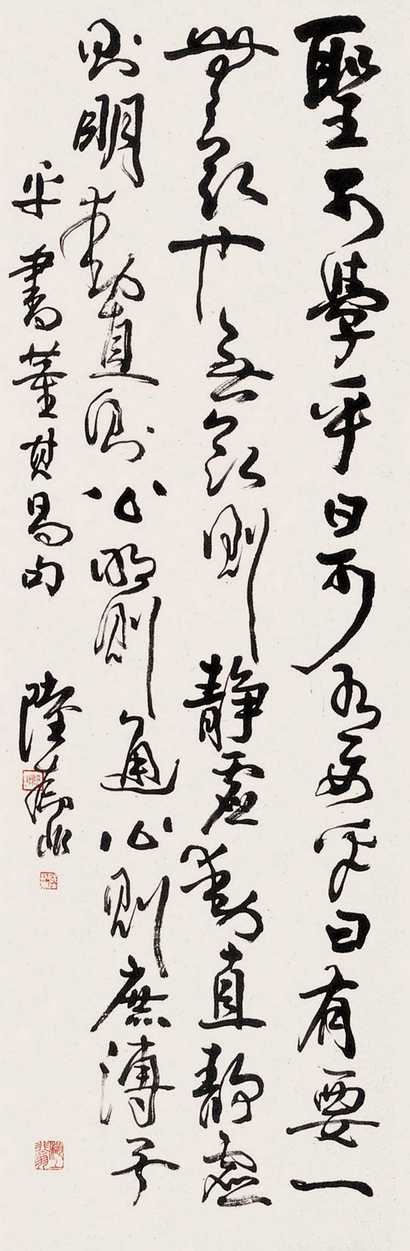 聖可學乎曰可有要乎曰有要一
無欲也無欲則静虛動直静虛
則明動直則公明則通公則庶溥矣
乎 書董其昌句 陸